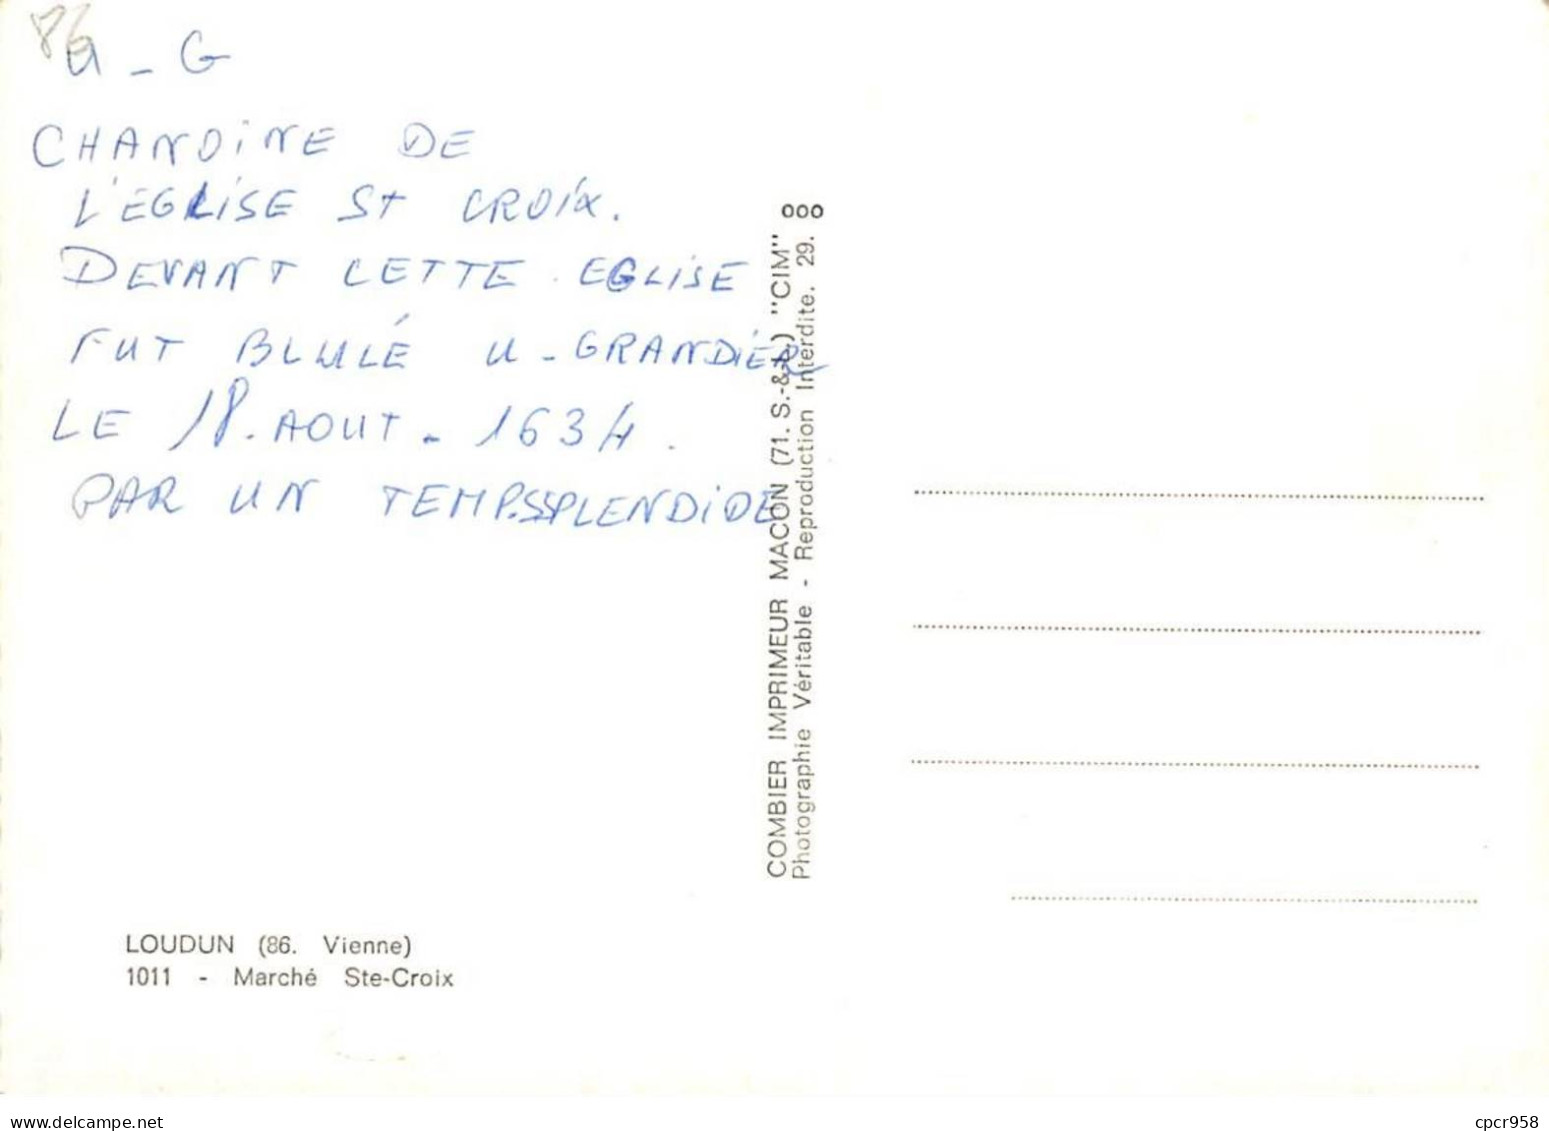 86
U - G
CHANOINE DE
L'EGLISE St CROIX.
DEVANT CETTE EGLISE
FUT BLULÉ U-GRANDIER
LE 18. AOUT - 1634.
PAR UN TEMPS.SPLENDIDE
ooo
COMBIER IMPRIMEUR MACON (71. S.-&-L.) "CIM"
Photographie Véritable - Reproduction Interdite. 29.
LOUDUN (86. Vienne)
1011 - Marché Ste-Croix
www.delcampe.net
cpcr958